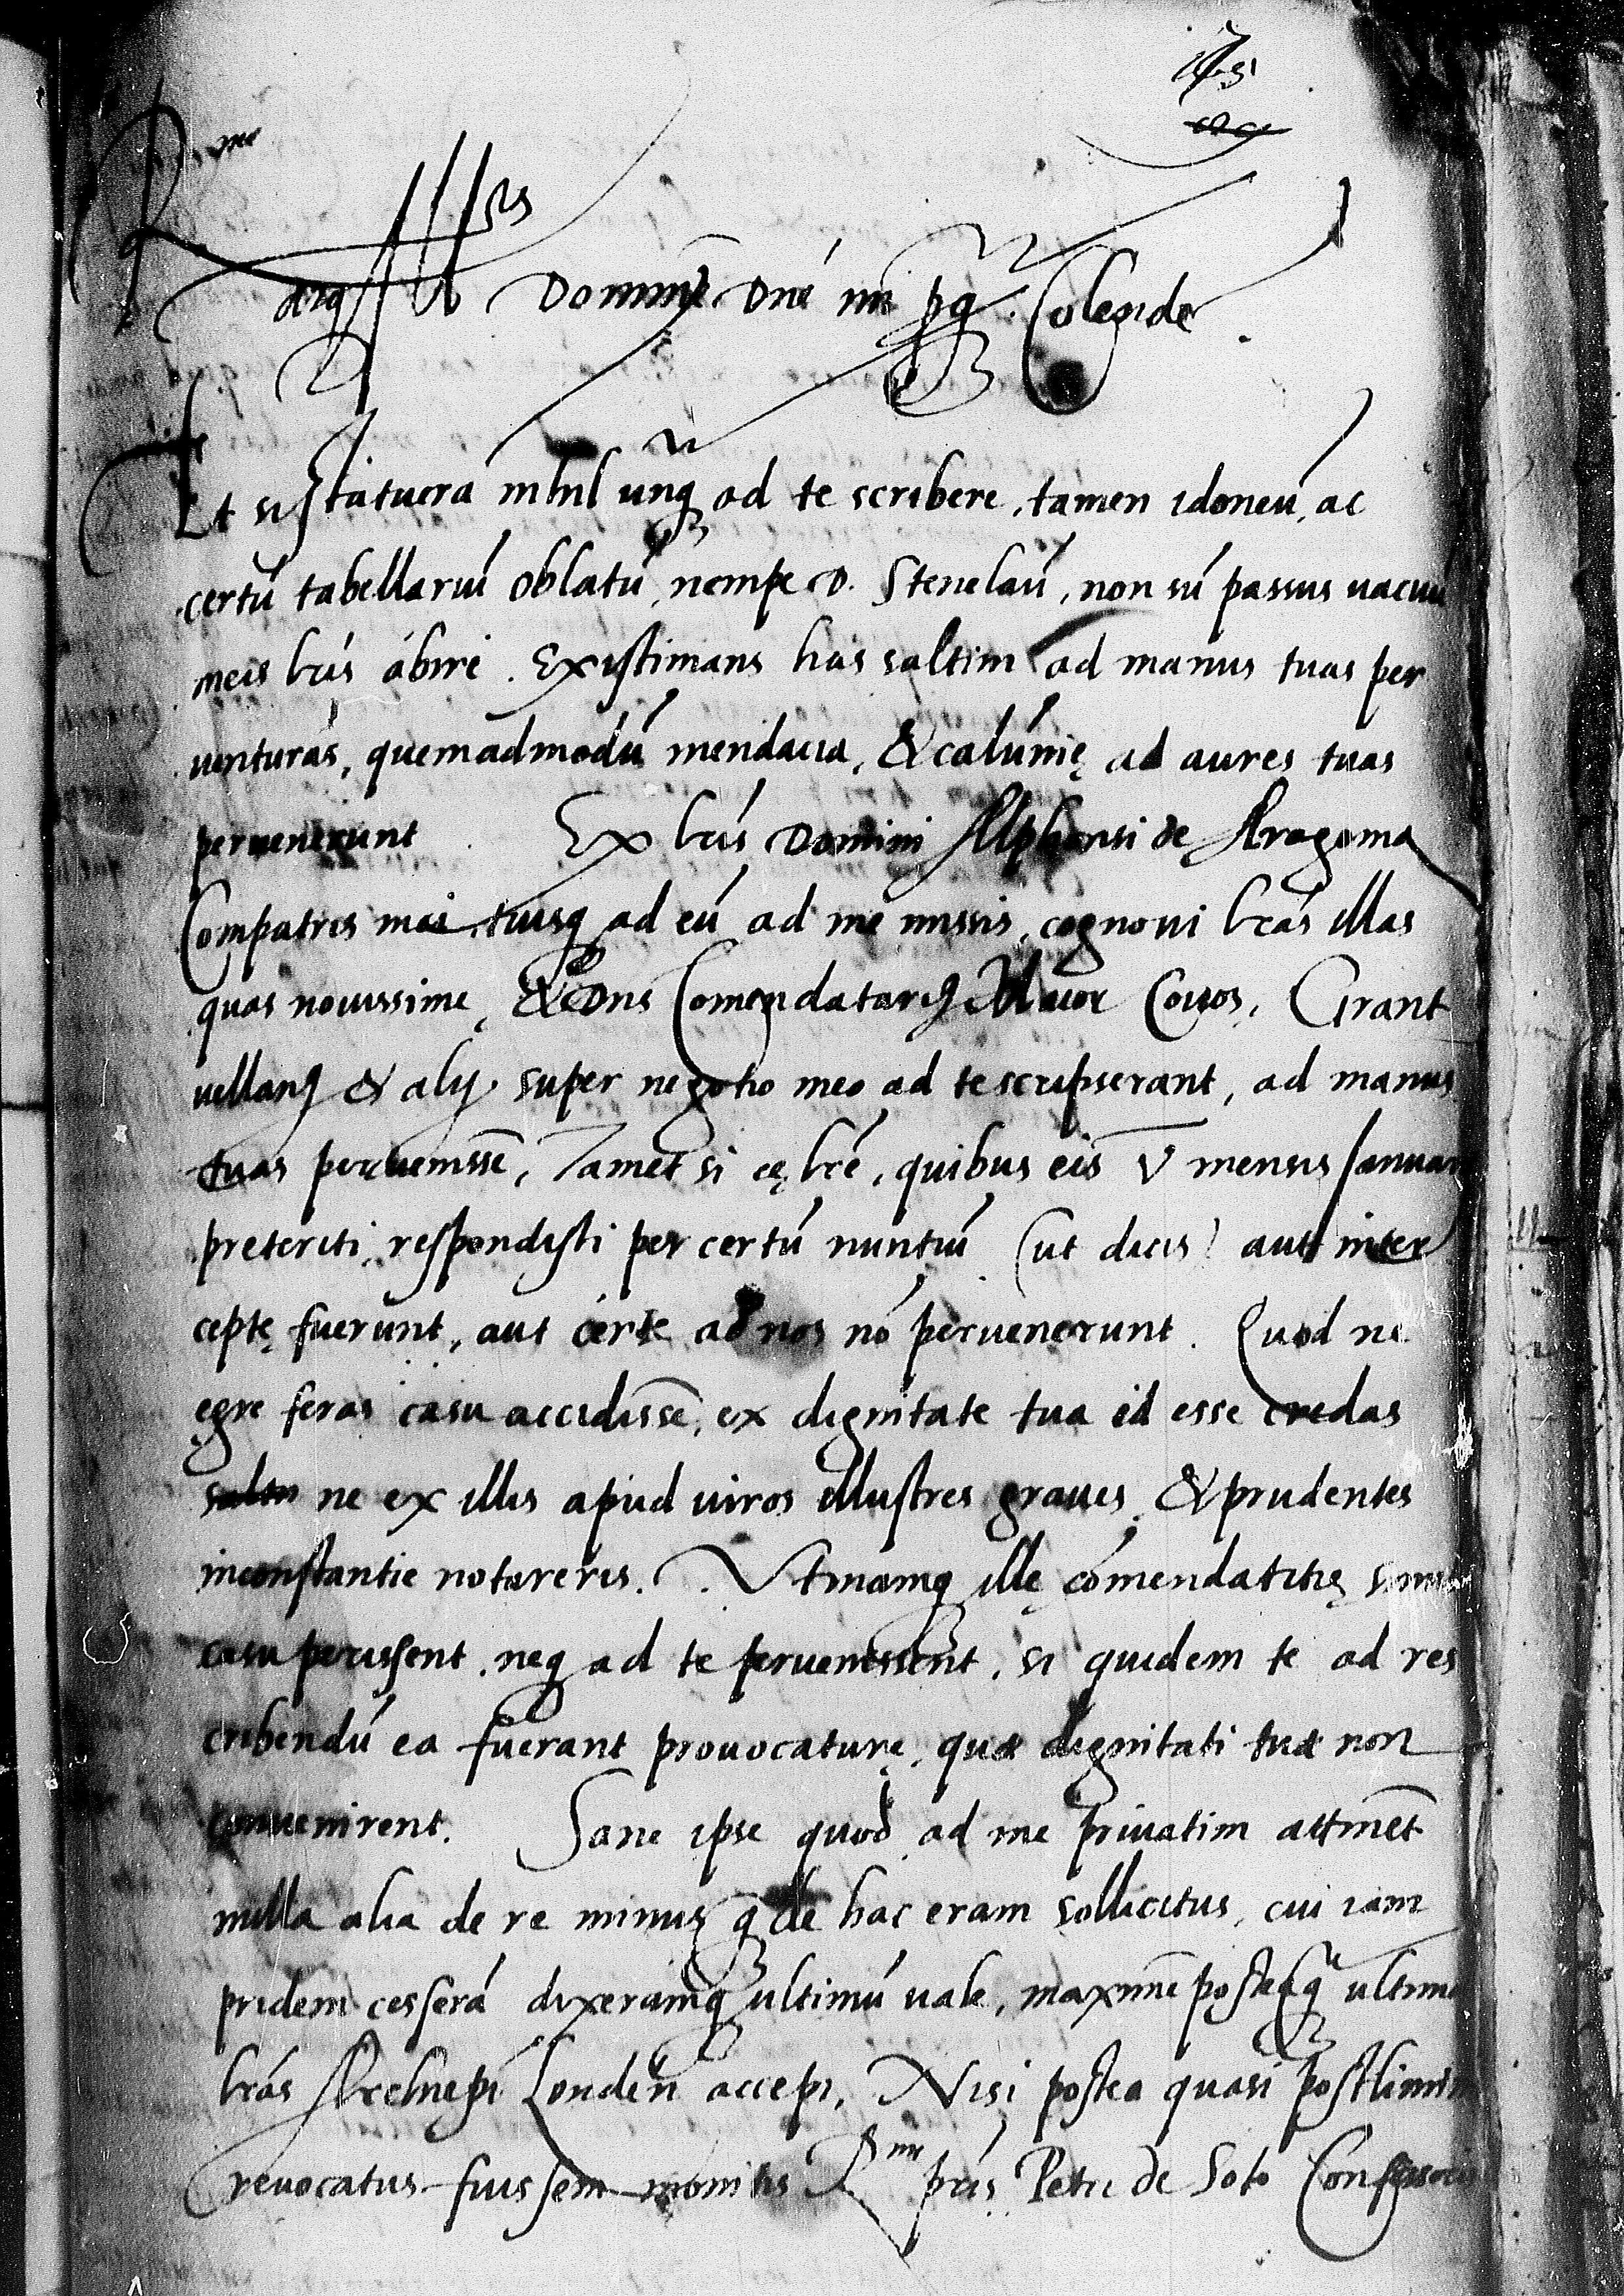 R^me
atq Ill^ris Domine Dne mi pq. Colende.
Et si statuerá nihil unq̃ ad te scribere, tamen idoneú, ac
certú tabellariú oblatú, nempe D. Stenelaú, non sú passus vacuú
meis lrís ábire. Existimans has saltim ad manus tuas per
venturas, quemadmodú mendacia, & calúnię ad aures tuas
pervenerunt. Ex lrís Domini Alphonsi de Aragonia
Compatris mei, tuisq ad eú ad me missis, cognovi lrás illas
quas novissime, & Dns Comendatariq Maior Covos, Grant
vellanq & alij super negotio meo ad te scripserant, ad manus
tuas pervenissē, Tamet si eę lrē, quibus eis V mensis Januarij
preteriti, respondisti per certú nuntiú (ut dicis) aut inter
ceptę fuerunt, aut certe ad nos nó pervenerunt. Quod ne
ęgre feras casu accidissē, ex dignitate tua id esse credas
ne ex illis apud viros illustres graves, & prudentes
inconstantie notareris. Utinamq illę cómendatitię simili
casu perissent, neq ad te pervenissent, si quidem te ad res
cribendú ea fuerant provocaturę, quæ dignitati tuæ non
convenirent. Sane ipse quod ad me privatim attinēt
nulla alia de re minus q̃ de hac eram sollicitus, cui iam
pridem cesserá dixeramq ultimú vale, maxime posteaq̃ ultima
lrás Archiepi Londeñ accepi, Nisi postea quasi postlimin
revocatus fuissem monitis R^mi pris Petri de Soto Confessoris